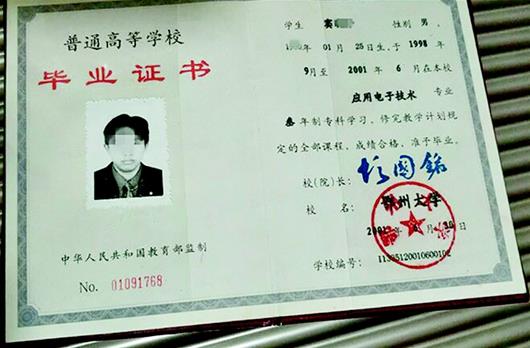 普通高等学校
毕业证书
中华人民共和国教育部监制
No. 01091768
学生 窦 性别 男,
1 年 01 月 25 日生,于 1998
年 9 月至 2001 年 6 月在本校
应用电子技术 专业
叁 年制专科学习,修完教学计划规
定的全部课程,成绩合格,准予毕业。
校(院)长:
校 名: 鄂州大学
2001 年 月 30 日
学校编号: 11335120010600102